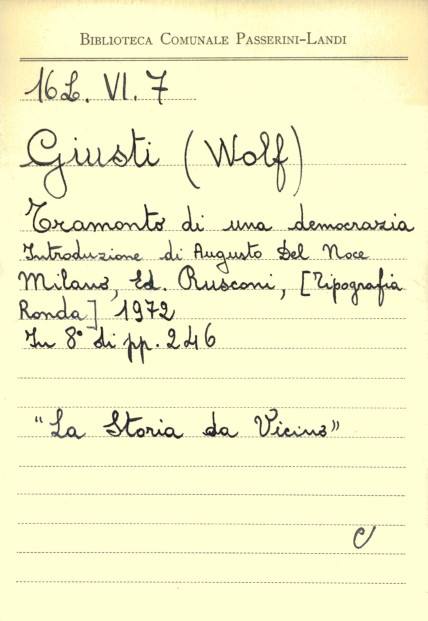 BIBLIOTECA COMUNALE PASSERINI-LANDI
16L. VI. 7
Giusti (Wolf)
Tramonto di una democrazia
Introduzione di Augusto Del Noce
Milano, Ed. Rusconi, [Tipografia
Ronda] 1972
In 8° di pp. 246
"La Storia da Vicino"
C